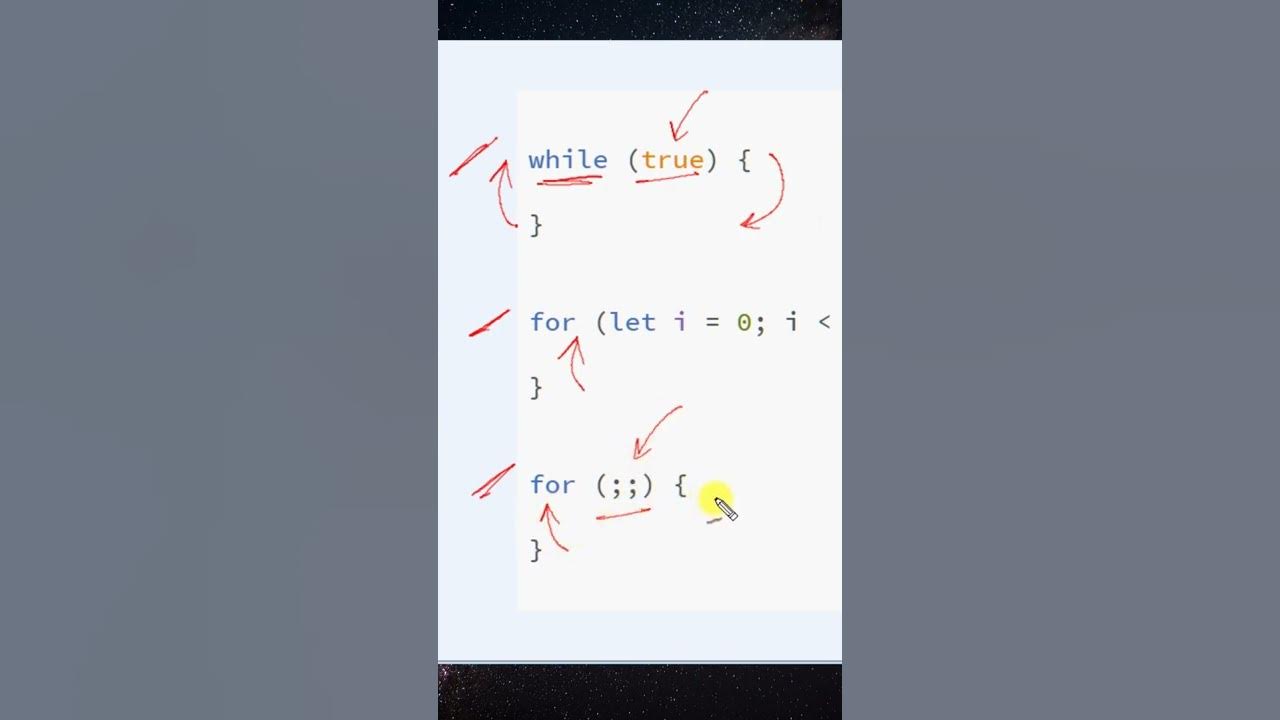 while (true) {
}
for (let i = 0; i <
}
for (;;) {
}